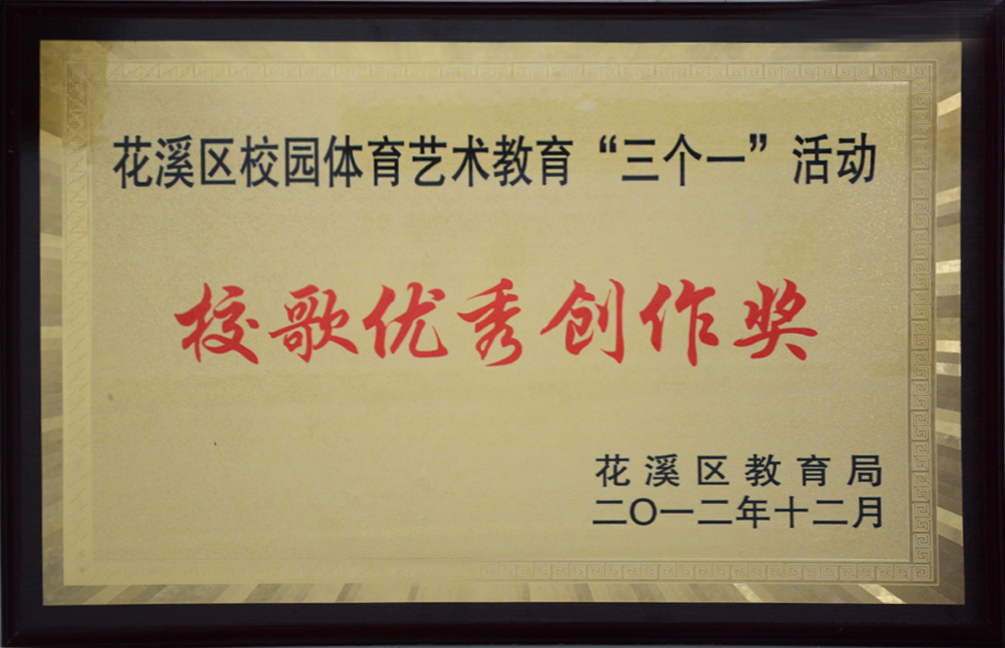 花溪区校园体育艺术教育“三个一”活动
校歌优秀创作奖
花溪区教育局
二〇一二年十二月